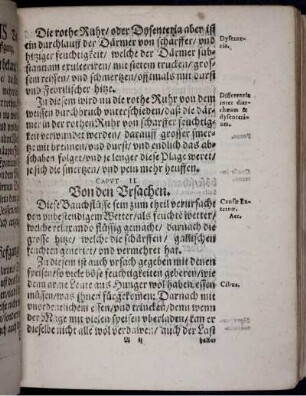 Die rothe Ruhr/oder Dysenteria aber ist
ein durchlauff der Därmer von scharffer/ und
hitziger feuchtigkeit/ welche der Därmer sub-
stantiam exulceriren/ mit stetem trucken/ gros-
sem reissen/ und schmertzen/offtmals mit durst
und Feorilischer hitze.
In diesem wird nu die rothe Ruhr von dem
weissen durchbruch unterschieden/daß die där-
mer in der rothen Ruhr von scharffer feuchtig-
keit verwundet werden/ darauff grosser smer-
tze mit brennen/und durst/ und endlich das ab-
schaben folget/und je lenger diese Plage weret/
je sich die smertzen/ und pein mehr heuffen.
CAPVT II.
Von den Vrsachen.
Diese Bauchflüsse sein zum theil verursacht
von unbestendigem Wetter/als feuchte wetter/
welche relaxando flüssig gemacht/ darnach die
grosse hitze/ welche die schärffen/ gallischen
feuchten generirt/ und vermehret hat.
Zu diesem ist auch ursach gegeben mit den
speisen/so viele böse feuchtigkeiten geberen/wie
denn arme Leute aus Hunger wol haben essen
müssen/was ihnen fürgekomen: Darnach mit
unordentlichem essen/ und trincken/ denn wenn
der Mage mit vielen speisen uberladen/ kan er
dieselbe nicht alle wol verdawen/ auch der Last
A ij
halber
Dysente-
ria.
Differentia
inter diar-
rhœam &
dysenteri-
am.
Causæ Ex-
ternæ.
Aer.
Cibus.